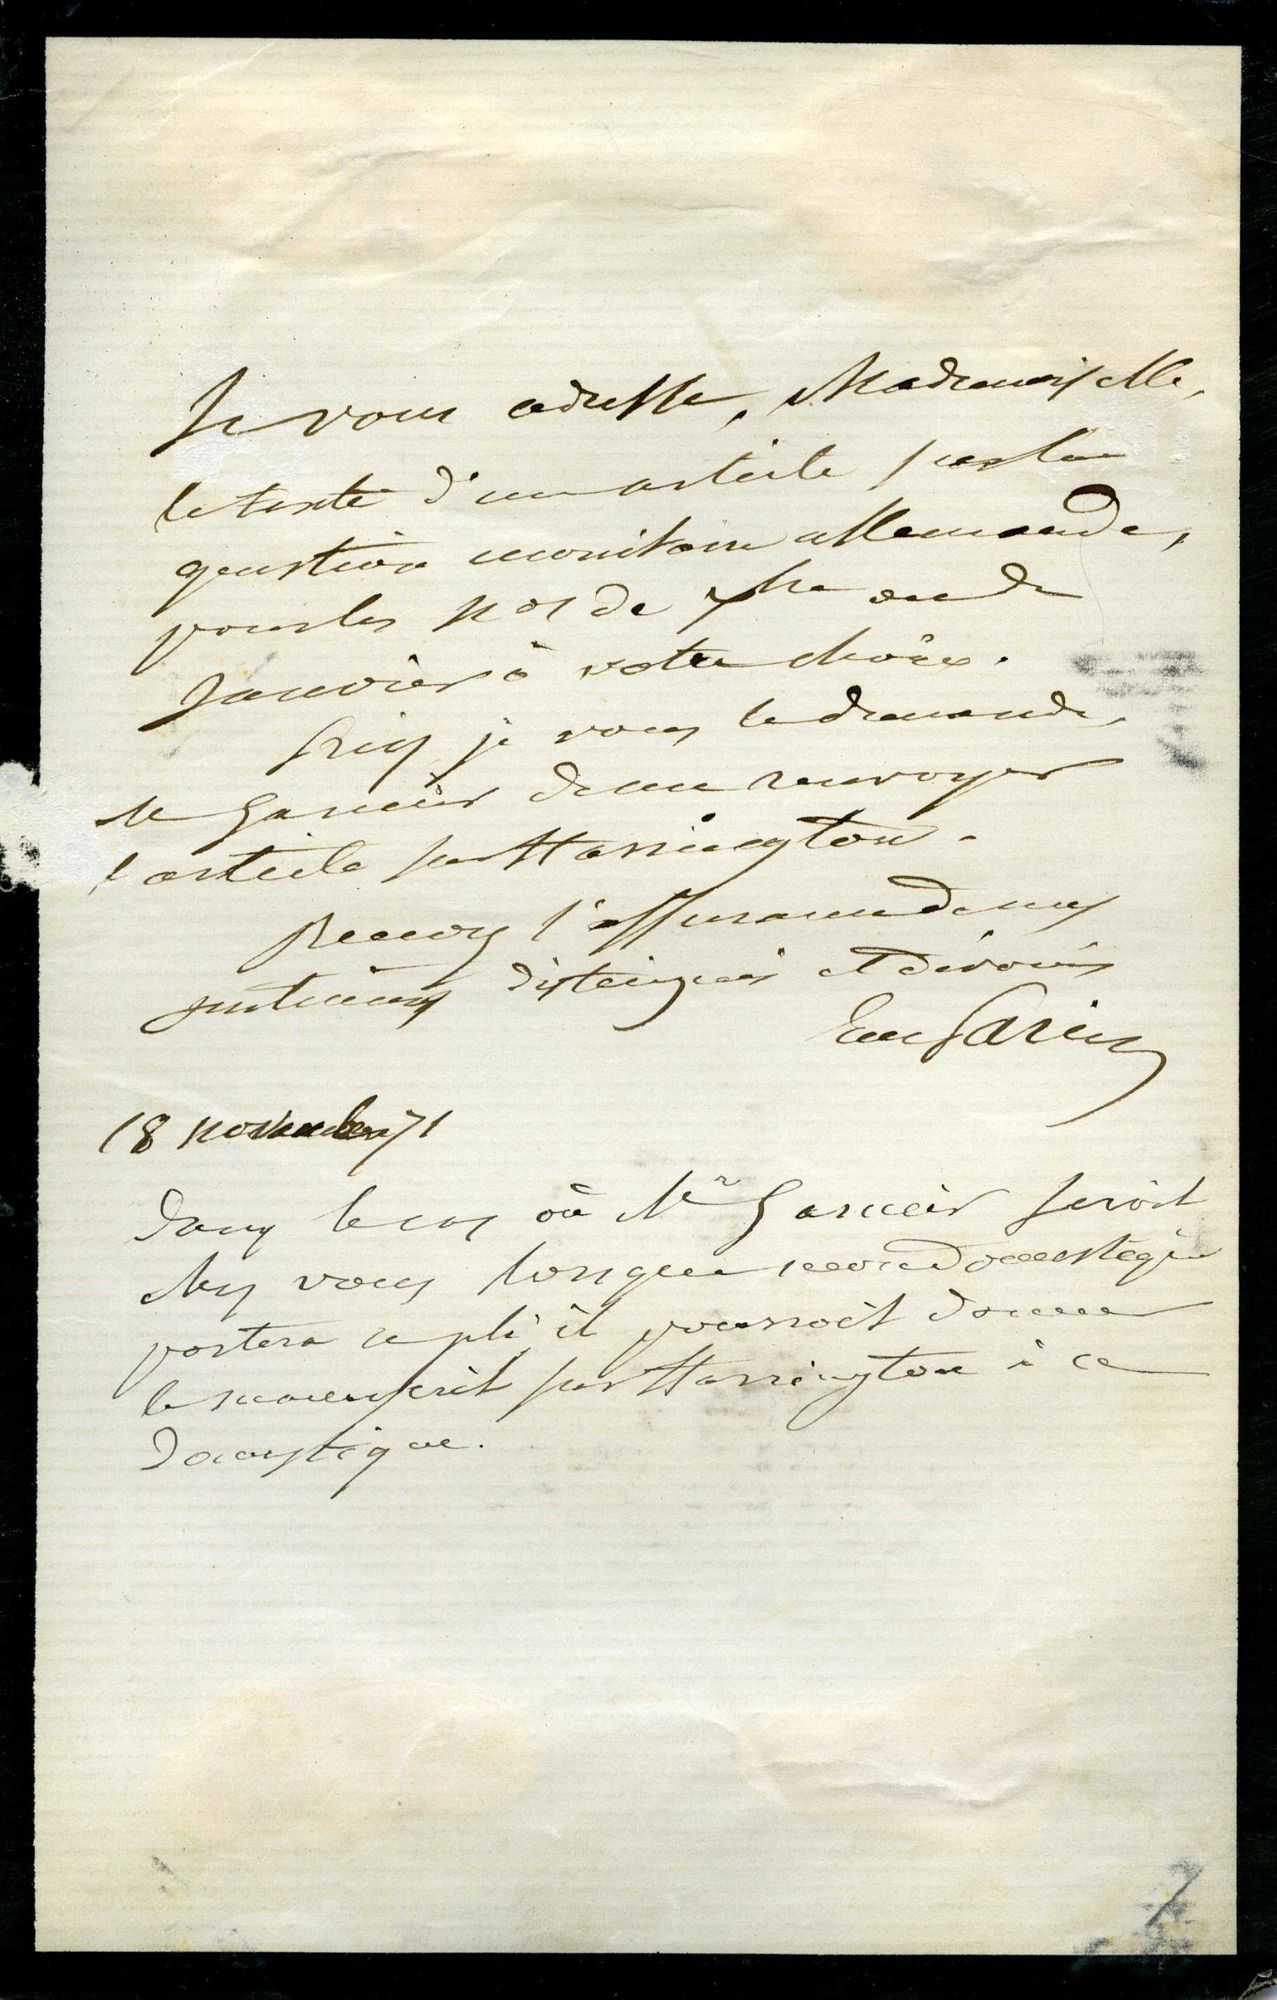 Je vous adresse, Mademoiselle,
le texte d'un article sur la
question monétaire allemande,
pour les nos de Xbre ou de
Janvier à votre choix.
Priez je vous le demande,
M Garnier de me renvoyer
l'article sur Harrington.
Recevez l'assurance de mes
sentimens distingués et dévoués
Parieu
18 novembre 71
Dans le cas où Mr Garnier serait
chez vous lorsque mon domestique
portera ce pli il pourroit donner
le manuscrit sur Harrington à ce
domestique.